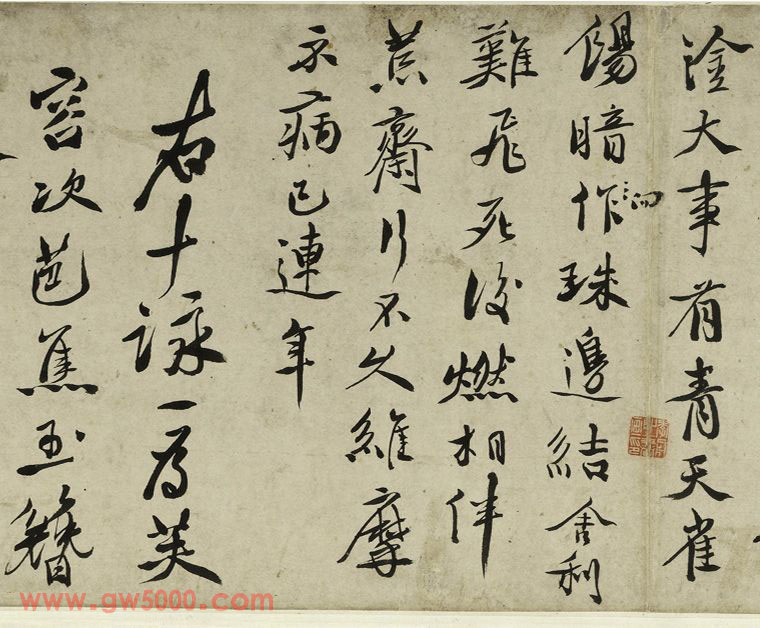 淦大事有青天雀
餳暗作珠邊結舍利
難飛死後燃相伴
荒齋行不久維摩
示病已連年
右十詠一為芙
容次芭蕉玉簪
www.gw5000.com